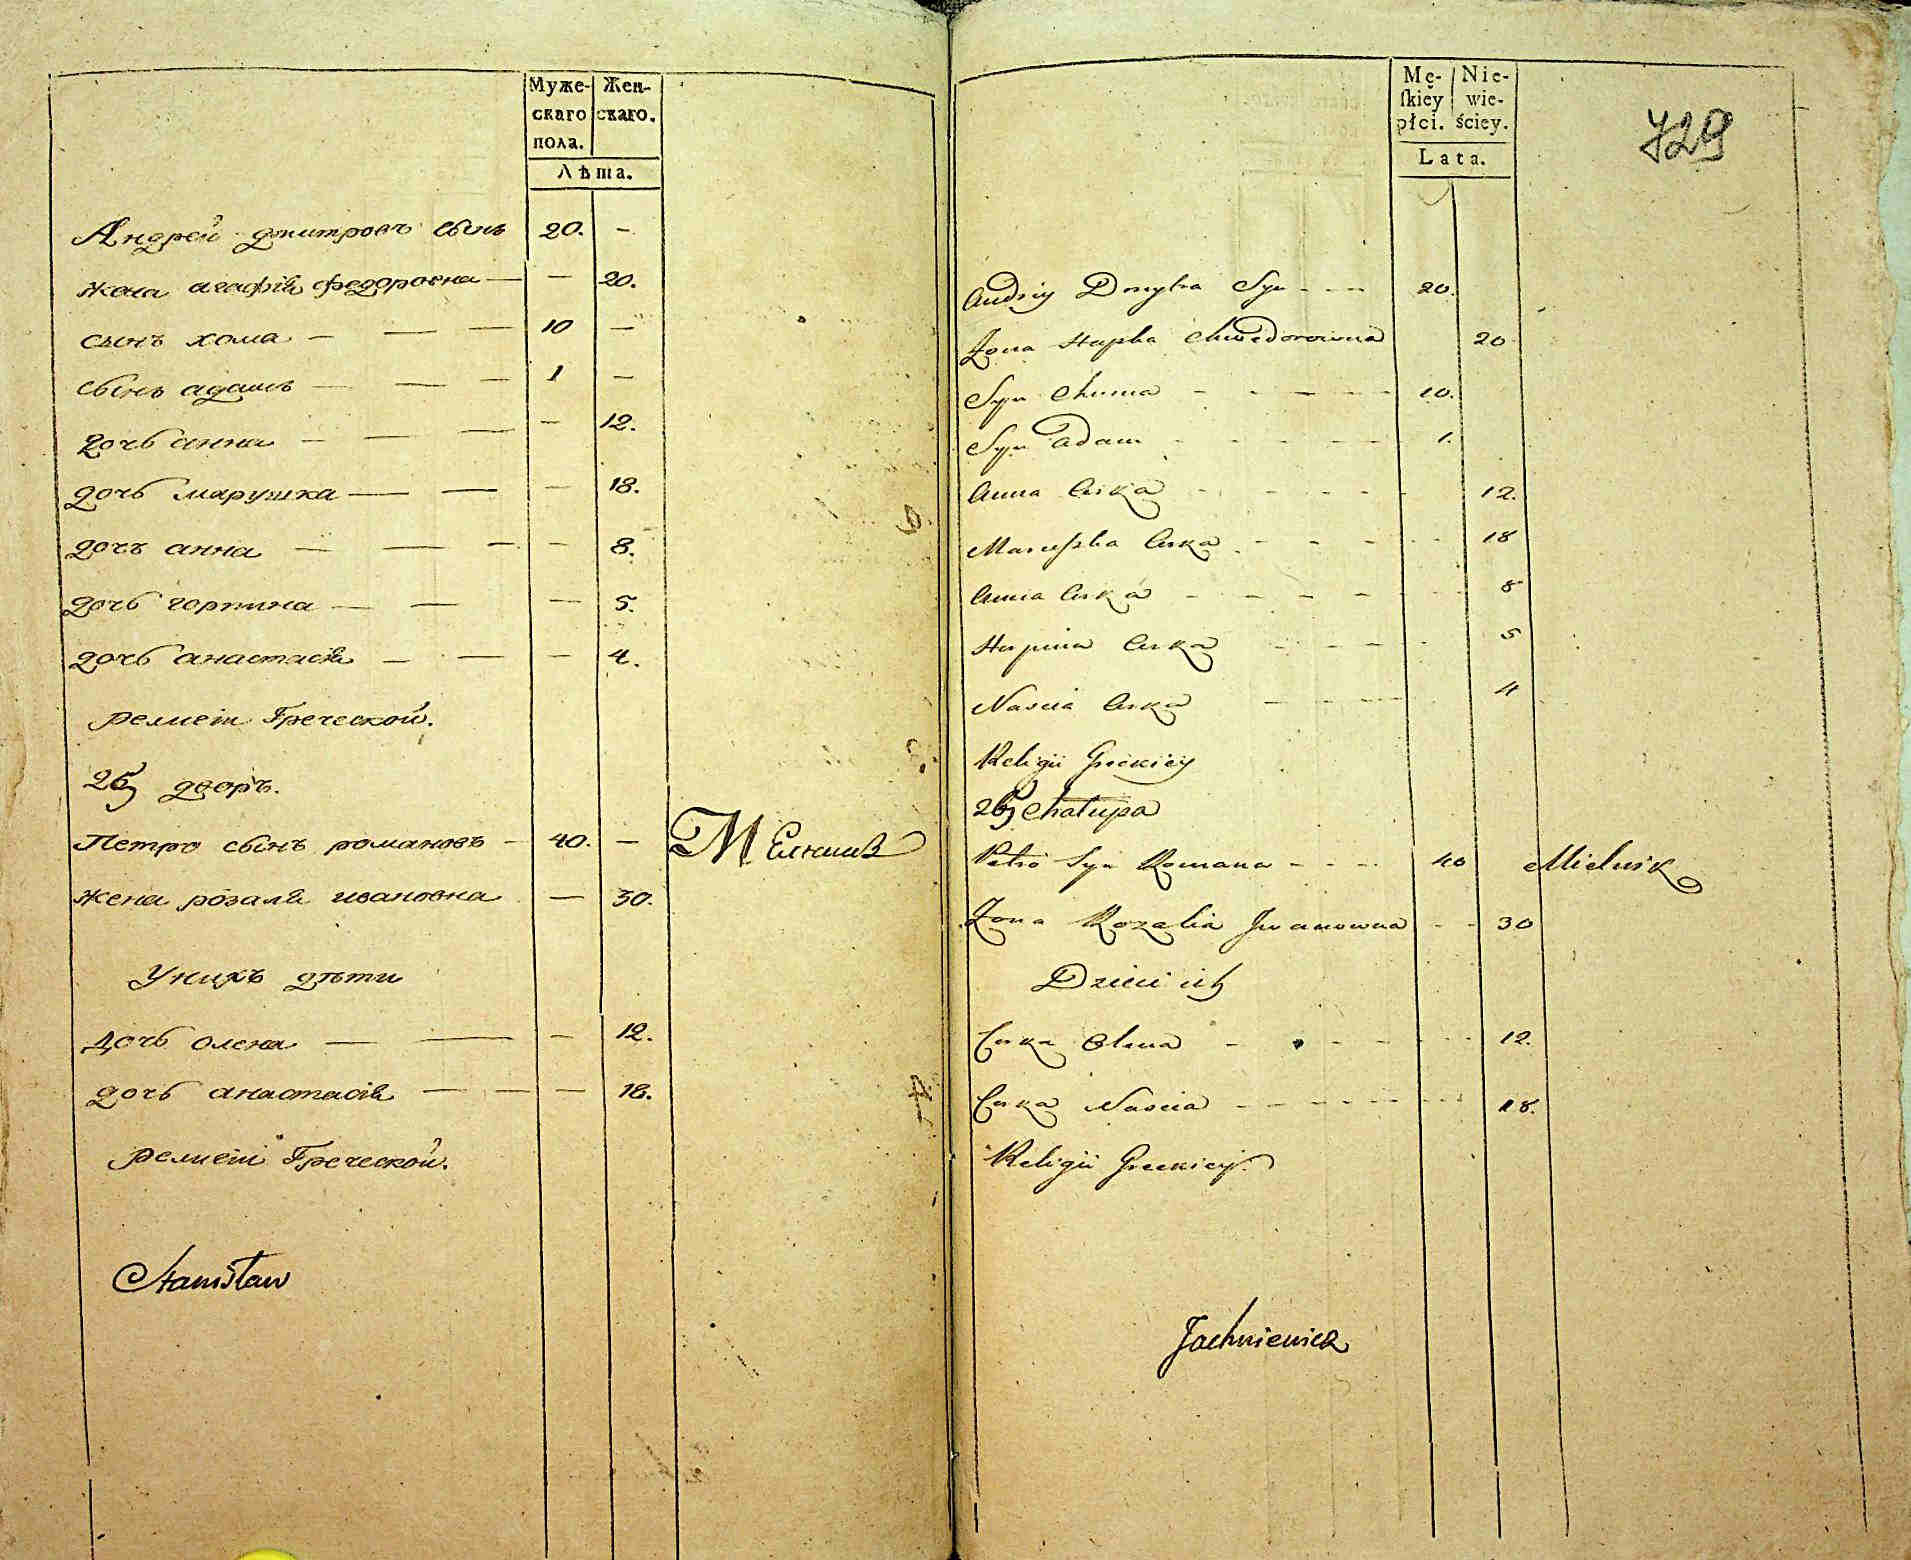 Муже-
скаго
пола.
Жен-
скаго.
Лѣта.
Андрей дмитровъ сынъ 20. —
жена агафія федоровна — — 20.
сынъ хома — — — 10 —
сынъ адамъ — — — 1 —
дочь анна — — — — 12.
дочь марушка — — — 18.
дочь анна — — — — 8.
дочь горпина — — — 5.
дочь анастасія — — — 4.
релиеіи Греческой.
25 дворъ.
Петро сынъ романовъ — 40. — Мелникъ
жена розалія ивановна — 30.
Унихъ дѣти
дочь олена — — — 12.
дочь анастасія — — — 18.
релиеіи Греческой.
Stanisław
Mę-
ſkiey
płci.
Nie-
wie-
ściey.
Lata.
729
Andriy Dmytra Syn - - - 20.
Żona Hapka Chwedorowna 20
Syn Chuma - - - - - 10.
Syn Adam - - - - - 1.
Anna Curka - - - - - 12.
Maruſzka Curka - - - - - 18
Anna Curka - - - - - 8
Harpina Curka - - - - 5
Nascia Curka - - - - 4
Religii Greckiey
25 Chałupa
Petro Syn Romana - - - - 40 Mielnik
Żona Rozalia Jwanowna - - 30
Dzieci ich
Curka Olena - - - - - - 12.
Curka Nascia - - - - - - 18.
Religii Greckiey.
Jachniewicz